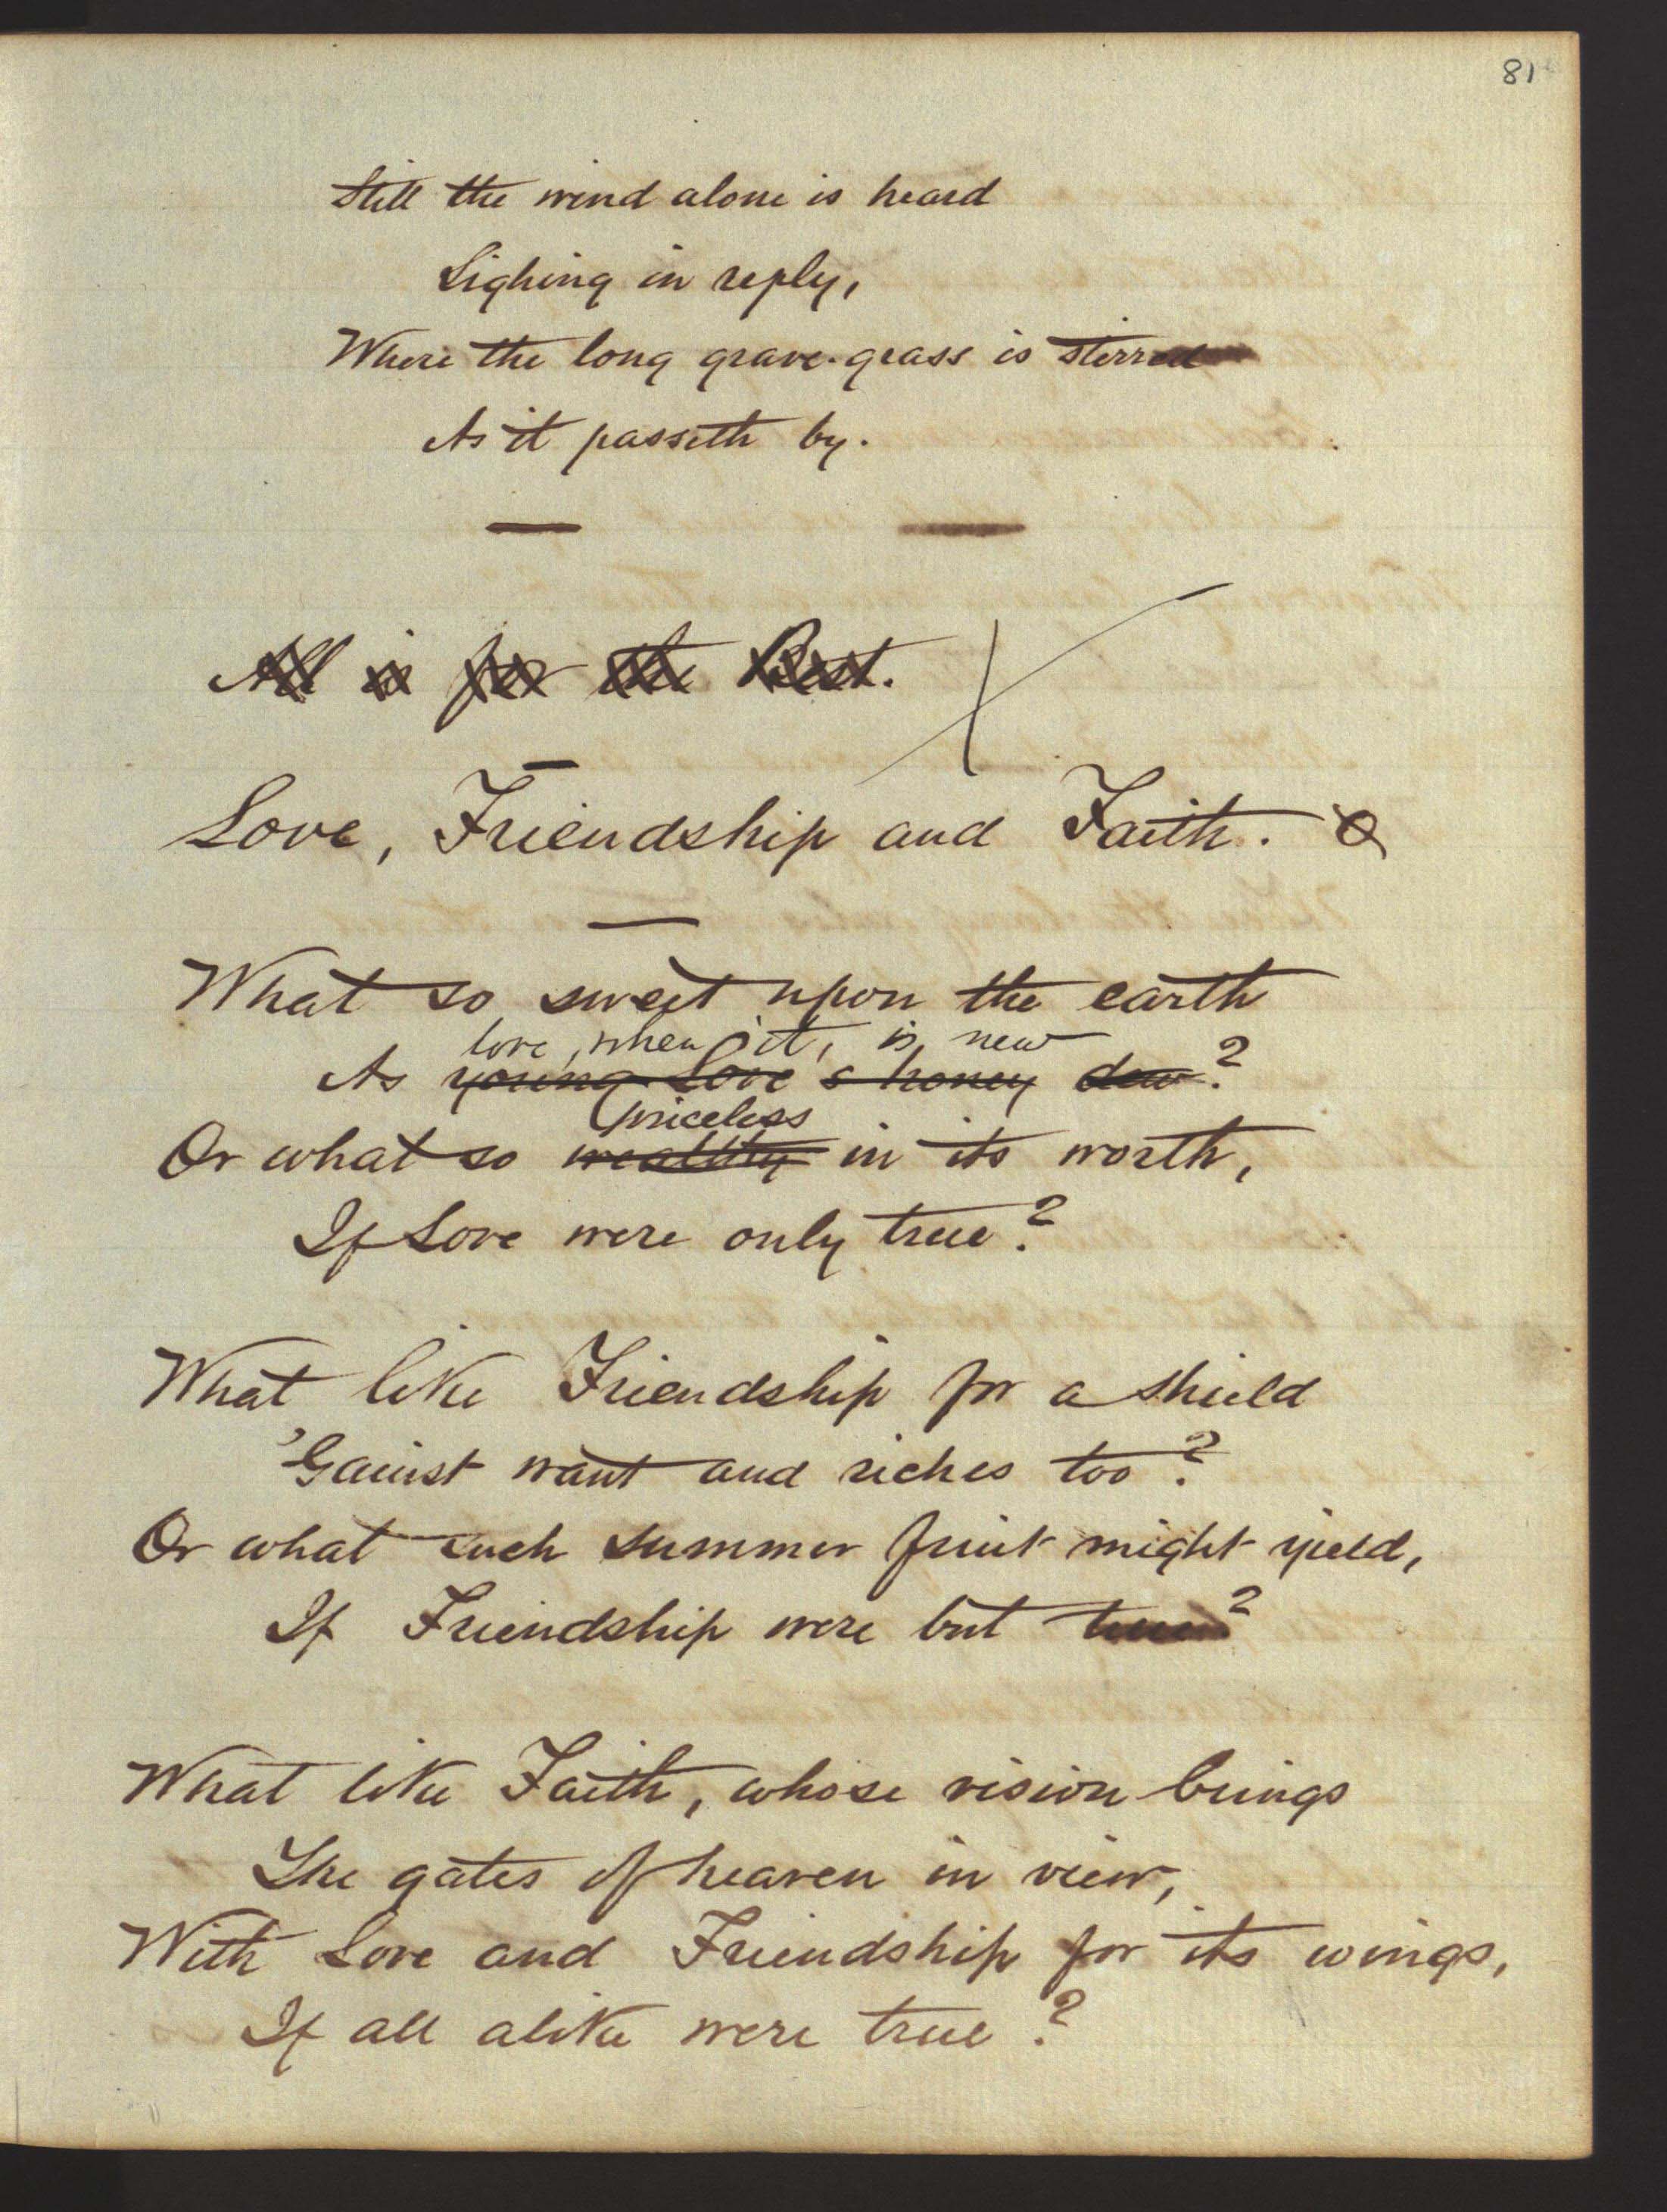 81
Still the wind alone is heard
Sighing in reply,
Where the long grave-grass is stirred
As it passeth by.
All is for the Best.
Love, Friendship and Faith.
What so sweet upon the earth
love, when it, is, new
As young Love's honey dew?
priceless
Or what so wealthy in its worth,
If Love were only true?
What like Friendship for a shield
'Gainst want and riches too?
Or what such summer fruit might yield,
If Friendship were but true?
What like Faith, whose vision brings
The gates of heaven in view,
With Love and Friendship for its wings,
If all alike were true?